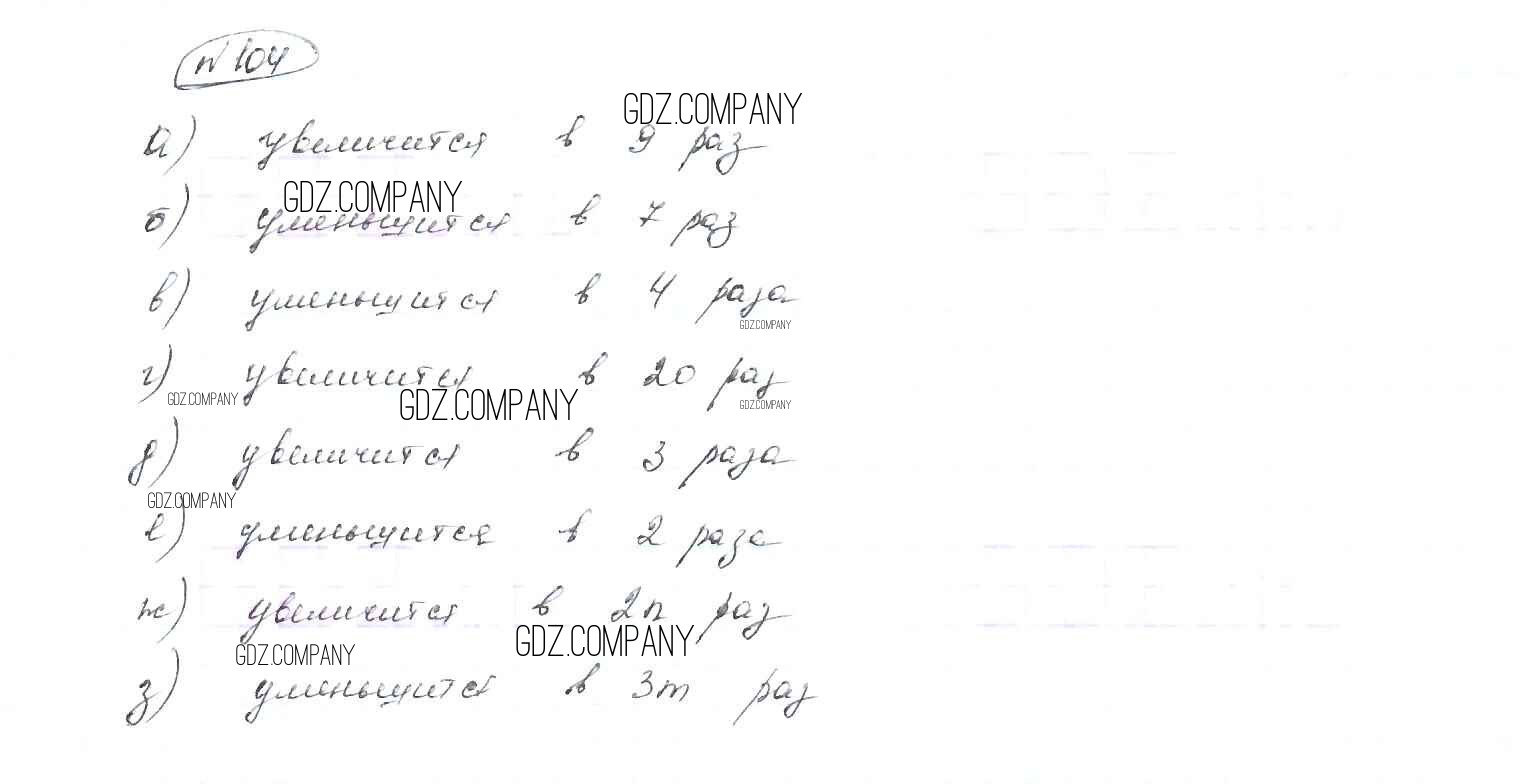 № 104
GDZ.COMPANY
а) увеличится в 9 раз
GDZ.COMPANY
б) уменьшится в 7 раз
в) уменьшится в 4 раза
GDZ.COMPANY
г) увеличится в 20 раз
GDZ.COMPANY GDZ.COMPANY GDZ.COMPANY
д) увеличится в 3 раза
GDZ.COMPANY
е) уменьшится в 2 раза
ж) увеличится в 2n раз
GDZ.COMPANY GDZ.COMPANY
з) уменьшится в 3m раз